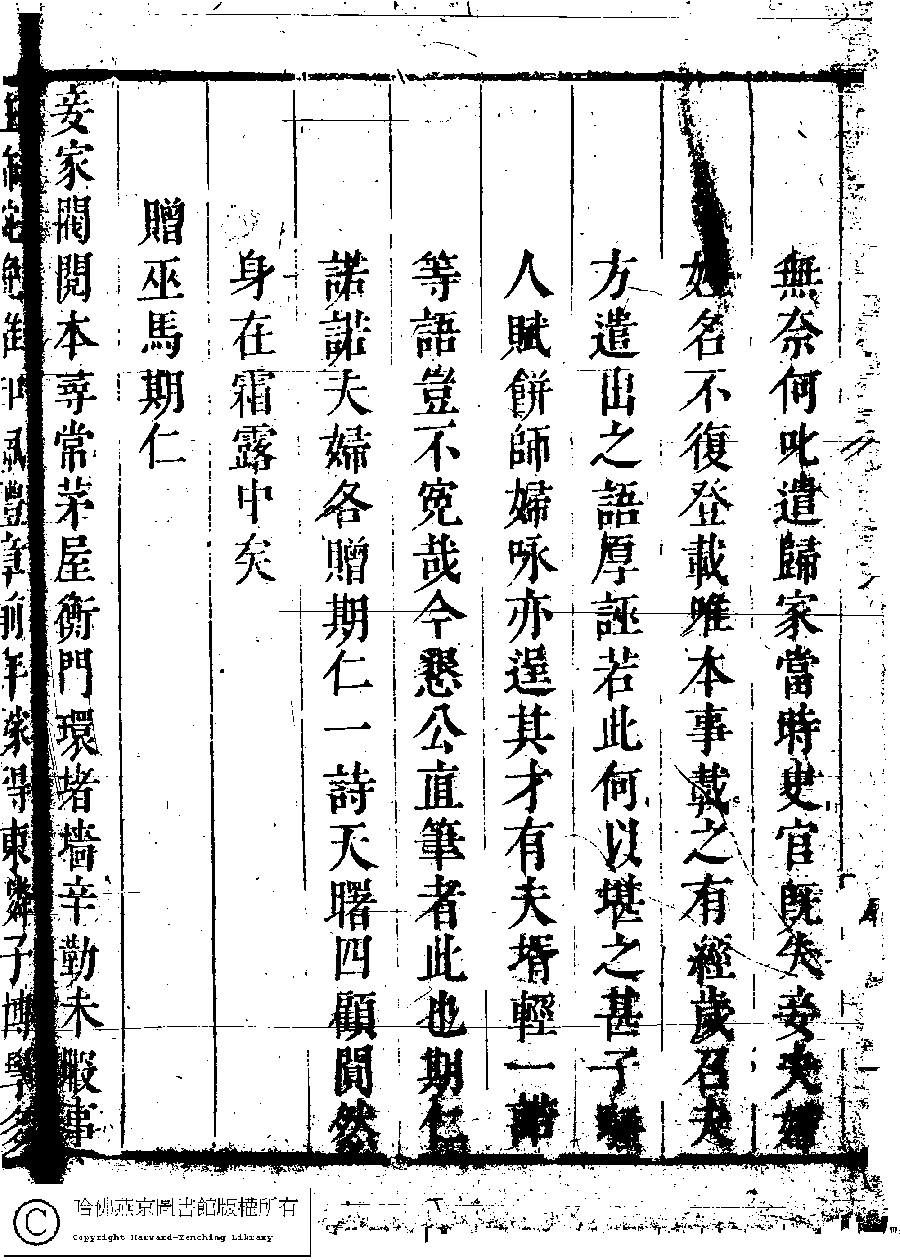 無奈何叱遣歸家當時史官旣失妾夫婦
姓名不復登載唯本事載之有經歲召夫
方遣出之語厚誣若此何以堪之甚
人賦餅師婦咏亦逞其才有夫壻輕一諾
等語豈不寃哉今懇公直筆者此也期仁
諾諾夫婦各贈期仁一詩天曙四顧闃然
身在霜露中矣
贈巫馬期仁
妾家閥閱本尋常茅屋衡門環堵墻辛勤未暇事
年 得東鄰子博學多
哈佛燕京圖書館版權所有
Copyright Harvard-Yenching Library